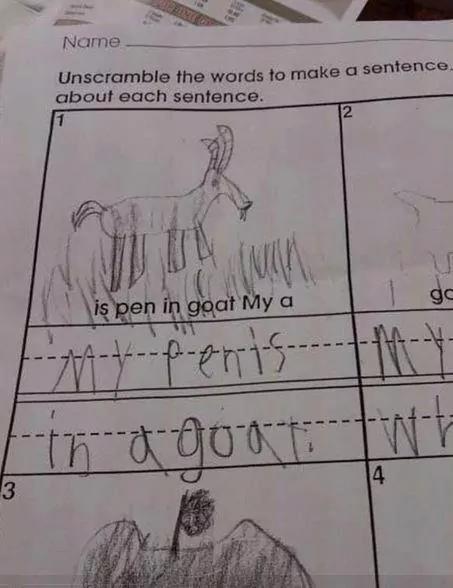 Name
Unscramble the words to make a sentence.
about each sentence.
1
2
is pen in goat My a
go
My penis
My
in a goat.
wh
3
4